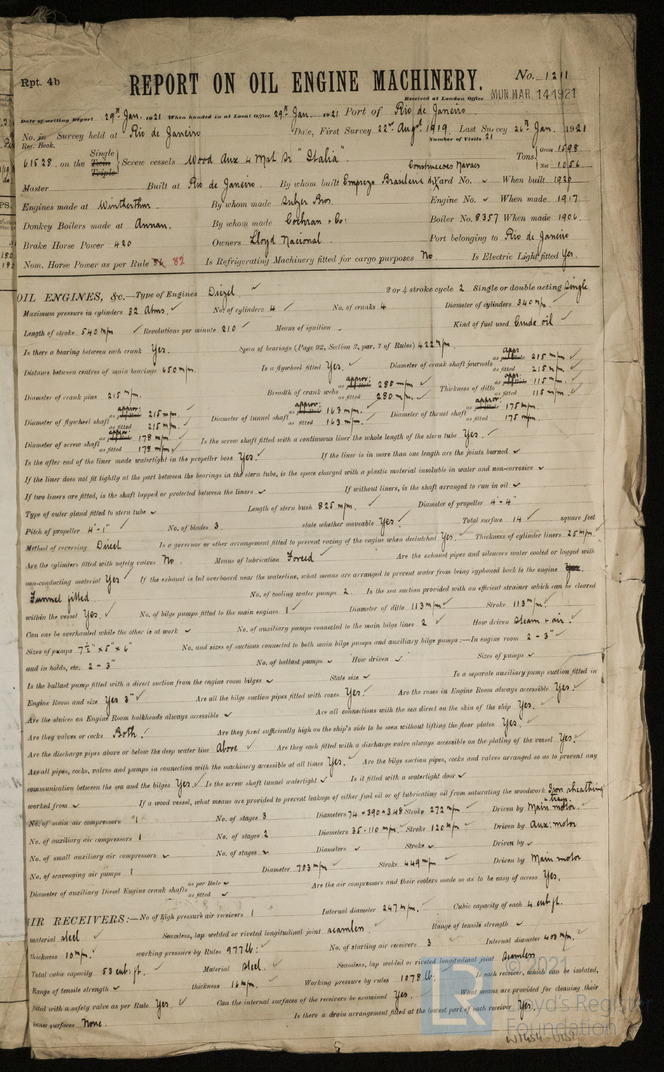 Rpt. 4b
REPORT ON OIL ENGINE MACHINERY. No. 1211
Received at London Office MON. MAR. 14 1921
Date of writing Report 29th Jan. 1921 When handed in at Local Office 29th Jan. 1921 Port of Rio de Janeiro
No. in Reg. Book. Survey held at Rio de Janeiro Date, First Survey 22nd Augt 1919. Last Survey 26th Jan. 1921
Number of Visits 21
61528. on the Single Twin Triple Screw vessels Wood Aux 4 Mst Sr "Italia" Tons Gross 1598 Net 1056
Master Built at Rio de Janeiro. By whom built Empreza Brasileira d Construccoes Navaes Yard No. When built 1920
Engines made at Winterthur By whom made Sulzer Bros. Engine No. When made 1917
Donkey Boilers made at Annan. By whom made Cochran & Co. Boiler No. 8357 When made 1906.
Brake Horse Power 420 Owners Lloyd Nacional Port belonging to Rio de Janeiro
Nom. Horse Power as per Rule 82 Is Refrigerating Machinery fitted for cargo purposes No. Is Electric Light fitted Yes.
OIL ENGINES, &c.—Type of Engines Diezel 2 or 4 stroke cycle 2 Single or double acting Single
Maximum pressure in cylinders 32 Atms. No. of cylinders 4 No. of cranks 4 Diameter of cylinders 340 m/m
Length of stroke 540 m/m Revolutions per minute 210 Means of ignition Kind of fuel used Crude oil
Is there a bearing between each crank Yes. Span of bearings (Page 92, Section 2, par. 7 of Rules) 422 m/m
Distance between centres of main bearings 650 m/m Is a flywheel fitted Yes. Diameter of crank shaft journals as appr: 215 m/m as fitted 215 m/m
Diameter of crank pins 215 m/m. Breadth of crank webs as appr: 280 m/m as fitted 280 m/m. Thickness of ditto as appr: 115 m/m as fitted 115 m/m
Diameter of flywheel shaft as appr: 215 m/m. as fitted 215 m/m. Diameter of tunnel shaft as appr: 163 m/m. as fitted 163 m/m. Diameter of thrust shaft as appr: 175 m/m. as fitted 175 m/m.
Diameter of screw shaft as appr: 178 m/m as fitted 178 m/m. Is the screw shaft fitted with a continuous liner the whole length of the stern tube Yes.
Is the after end of the liner made watertight in the propeller boss Yes. If the liner is in more than one length are the joints burned
If the liner does not fit tightly at the part between the bearings in the stern tube, is the space charged with a plastic material insoluble in water and non-corrosive
If two liners are fitted, is the shaft lapped or protected between the liners If without liners, is the shaft arranged to run in oil
Type of outer gland fitted to stern tube Length of stern bush 825 m/m. Diameter of propeller 4'-4"
Pitch of propeller 4'-1" No. of blades 3. state whether moveable Yes. Total surface 14 square feet
Method of reversing Direct Is a governor or other arrangement fitted to prevent racing of the engine when declutched Yes. Thickness of cylinder liners 25 m/m.
Are the cylinders fitted with safety valves No. Means of lubrication Forced Are the exhaust pipes and silencers water cooled or lagged with
non-conducting material Yes If the exhaust is led overboard near the waterline, what means are arranged to prevent water from being syphoned back to the engine
Funnel fitted. No. of cooling water pumps 2. Is the sea suction provided with an efficient strainer which can be cleared
within the vessel Yes. No. of bilge pumps fitted to the main engines 1 Diameter of ditto 113 m/m Stroke 113 m/m.
Can one be overhauled while the other is at work No. of auxiliary pumps connected to the main bilge lines 2 How driven Steam & air.
Sizes of pumps 7½" x 5" x 6" No. and sizes of suctions connected to both main bilge pumps and auxiliary bilge pumps:—In engine room 2 - 3"
and in holds, etc. 2 - 3" No. of ballast pumps How driven Sizes of pumps
Is the ballast pump fitted with a direct suction from the engine room bilges State size Is a separate auxiliary pump suction fitted in
Engine Room and size Yes 3" Are all the bilge suction pipes fitted with roses Yes. Are the roses in Engine Room always accessible Yes.
Are the sluices on Engine Room bulkheads always accessible Are all connections with the sea direct on the skin of the ship Yes.
Are they valves or cocks Both. Are they fixed sufficiently high on the ship's side to be seen without lifting the floor plates Yes.
Are the discharge pipes above or below the deep water line Above Are they each fitted with a discharge valve always accessible on the plating of the vessel Yes.
Are all pipes, cocks, valves and pumps in connection with the machinery accessible at all times Yes. Are the bilge suction pipes, cocks and valves arranged so as to prevent any
communication between the sea and the bilges Yes. Is the screw shaft tunnel watertight Is it fitted with a watertight door
worked from If a wood vessel, what means are provided to prevent leakage of either fuel oil or lubricating oil from saturating the woodwork Iron sheathing & trays.
No. of main air compressors 1 No. of stages 3 Diameters 74 + 390 + 348 Stroke 272 m/m Driven by Main motor
No. of auxiliary air compressors 1 No. of stages 2 Diameters 35 - 110 m/m. Stroke 120 m/m Driven by Aux. motor
No. of small auxiliary air compressors No. of stages Diameters Stroke Driven by
No. of scavenging air pumps 1 Diameter 703 m/m Stroke 449 m/m Driven by Main motor
Diameter of auxiliary Diesel Engine crank shafts as per Rule as fitted Are the air compressors and their coolers made so as to be easy of access Yes.
AIR RECEIVERS:—No. of high pressure air receivers 1 Internal diameter 247 m/m. Cubic capacity of each 4 cub. ft.
material steel Seamless, lap welded or riveted longitudinal joint seamless. Range of tensile strength
thickness 10 m/m. working pressure by Rules 977 lb. No. of starting air receivers 3 Internal diameter 408 m/m.
Total cubic capacity 53 cub. ft. Material Steel. Seamless, lap welded or riveted longitudinal joint Seamless
Range of tensile strength thickness 16 m/m. Working pressure by rules 1078 lb. Is each receiver, which can be isolated,
fitted with a safety valve as per Rule Yes. Can the internal surfaces of the receivers be examined Yes. What means are provided for cleaning their
inner surfaces None. Is there a drain arrangement fitted at the lowest part of each receiver Yes.
© 2021
LR
Lloyd's Register
Foundation